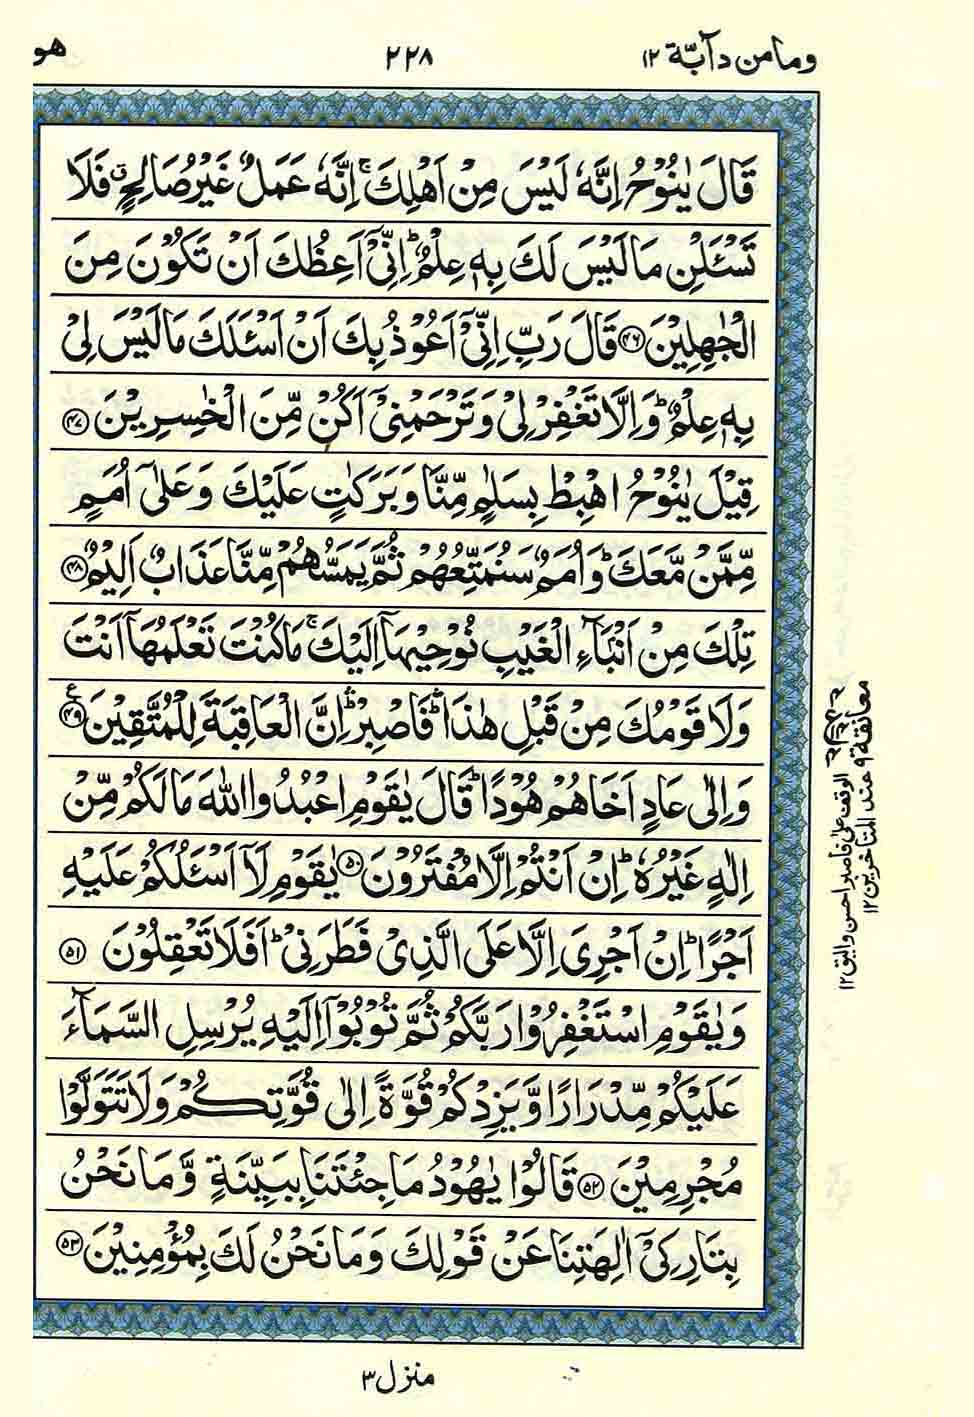 وما من دآبّة ١٢ ٢٢٨ هو
قَالَ يٰنُوْحُ اِنَّهٗ لَيْسَ مِنْ اَهْلِكَ ۚ اِنَّهٗ عَمَلٌ غَيْرُ صَالِحٍ ۖ فَلَا
تَسْـَٔلْنِ مَا لَيْسَ لَكَ بِهٖ عِلْمٌ ؕ اِنِّىْٓ اَعِظُكَ اَنْ تَكُوْنَ مِنَ
الْجٰهِلِيْنَ ﴿۴۶﴾ قَالَ رَبِّ اِنِّىْٓ اَعُوْذُ بِكَ اَنْ اَسْـَٔلَكَ مَا لَيْسَ لِىْ
بِهٖ عِلْمٌ ؕ وَاِلَّا تَغْفِرْ لِىْ وَتَرْحَمْنِىْٓ اَكُنْ مِّنَ الْخٰسِرِيْنَ ﴿۴۷﴾
قِيْلَ يٰنُوْحُ اهْبِطْ بِسَلٰمٍ مِّنَّا وَبَرَكٰتٍ عَلَيْكَ وَعَلٰٓى اُمَمٍ
مِّمَّنْ مَّعَكَ ؕ وَاُمَمٌ سَنُمَتِّعُهُمْ ثُمَّ يَمَسُّهُمْ مِّنَّا عَذَابٌ اَلِيْمٌ ﴿۴۸﴾
تِلْكَ مِنْ اَنْۢبَآءِ الْغَيْبِ نُوْحِيْهَاۤ اِلَيْكَ ۚ مَا كُنْتَ تَعْلَمُهَاۤ اَنْتَ
وَلَا قَوْمُكَ مِنْ قَبْلِ هٰذَا ۛؕ فَاصْبِرْ ۛؕ اِنَّ الْعَاقِبَةَ لِلْمُتَّقِيْنَ ﴿۴۹﴾ ع
وَاِلٰى عَادٍ اَخَاهُمْ هُوْدًا ؕ قَالَ يٰقَوْمِ اعْبُدُوا اللّٰهَ مَا لَكُمْ مِّنْ
اِلٰهٍ غَيْرُهٗ ؕ اِنْ اَنْتُمْ اِلَّا مُفْتَرُوْنَ ﴿۵۰﴾ يٰقَوْمِ لَاۤ اَسْـَٔلُكُمْ عَلَيْهِ
اَجْرًا ؕ اِنْ اَجْرِىَ اِلَّا عَلَى الَّذِىْ فَطَرَنِىْ ؕ اَفَلَا تَعْقِلُوْنَ ﴿۵۱﴾
وَيٰقَوْمِ اسْتَغْفِرُوْا رَبَّكُمْ ثُمَّ تُوْبُوْۤا اِلَيْهِ يُرْسِلِ السَّمَآءَ
عَلَيْكُمْ مِّدْرَارًا وَّيَزِدْكُمْ قُوَّةً اِلٰى قُوَّتِكُمْ وَلَا تَتَوَلَّوْا
مُجْرِمِيْنَ ﴿۵۲﴾ قَالُوْا يٰهُوْدُ مَا جِئْتَنَا بِبَيِّنَةٍ وَّمَا نَحْنُ
بِتَارِكِىْۤ اٰلِهَتِنَا عَنْ قَوْلِكَ وَمَا نَحْنُ لَكَ بِمُؤْمِنِيْنَ ﴿۵۳﴾
معانقة ٩ عند المتاخرين ١٢
الوقف على فاصبر احسن واليق ١٢
منزل ٣